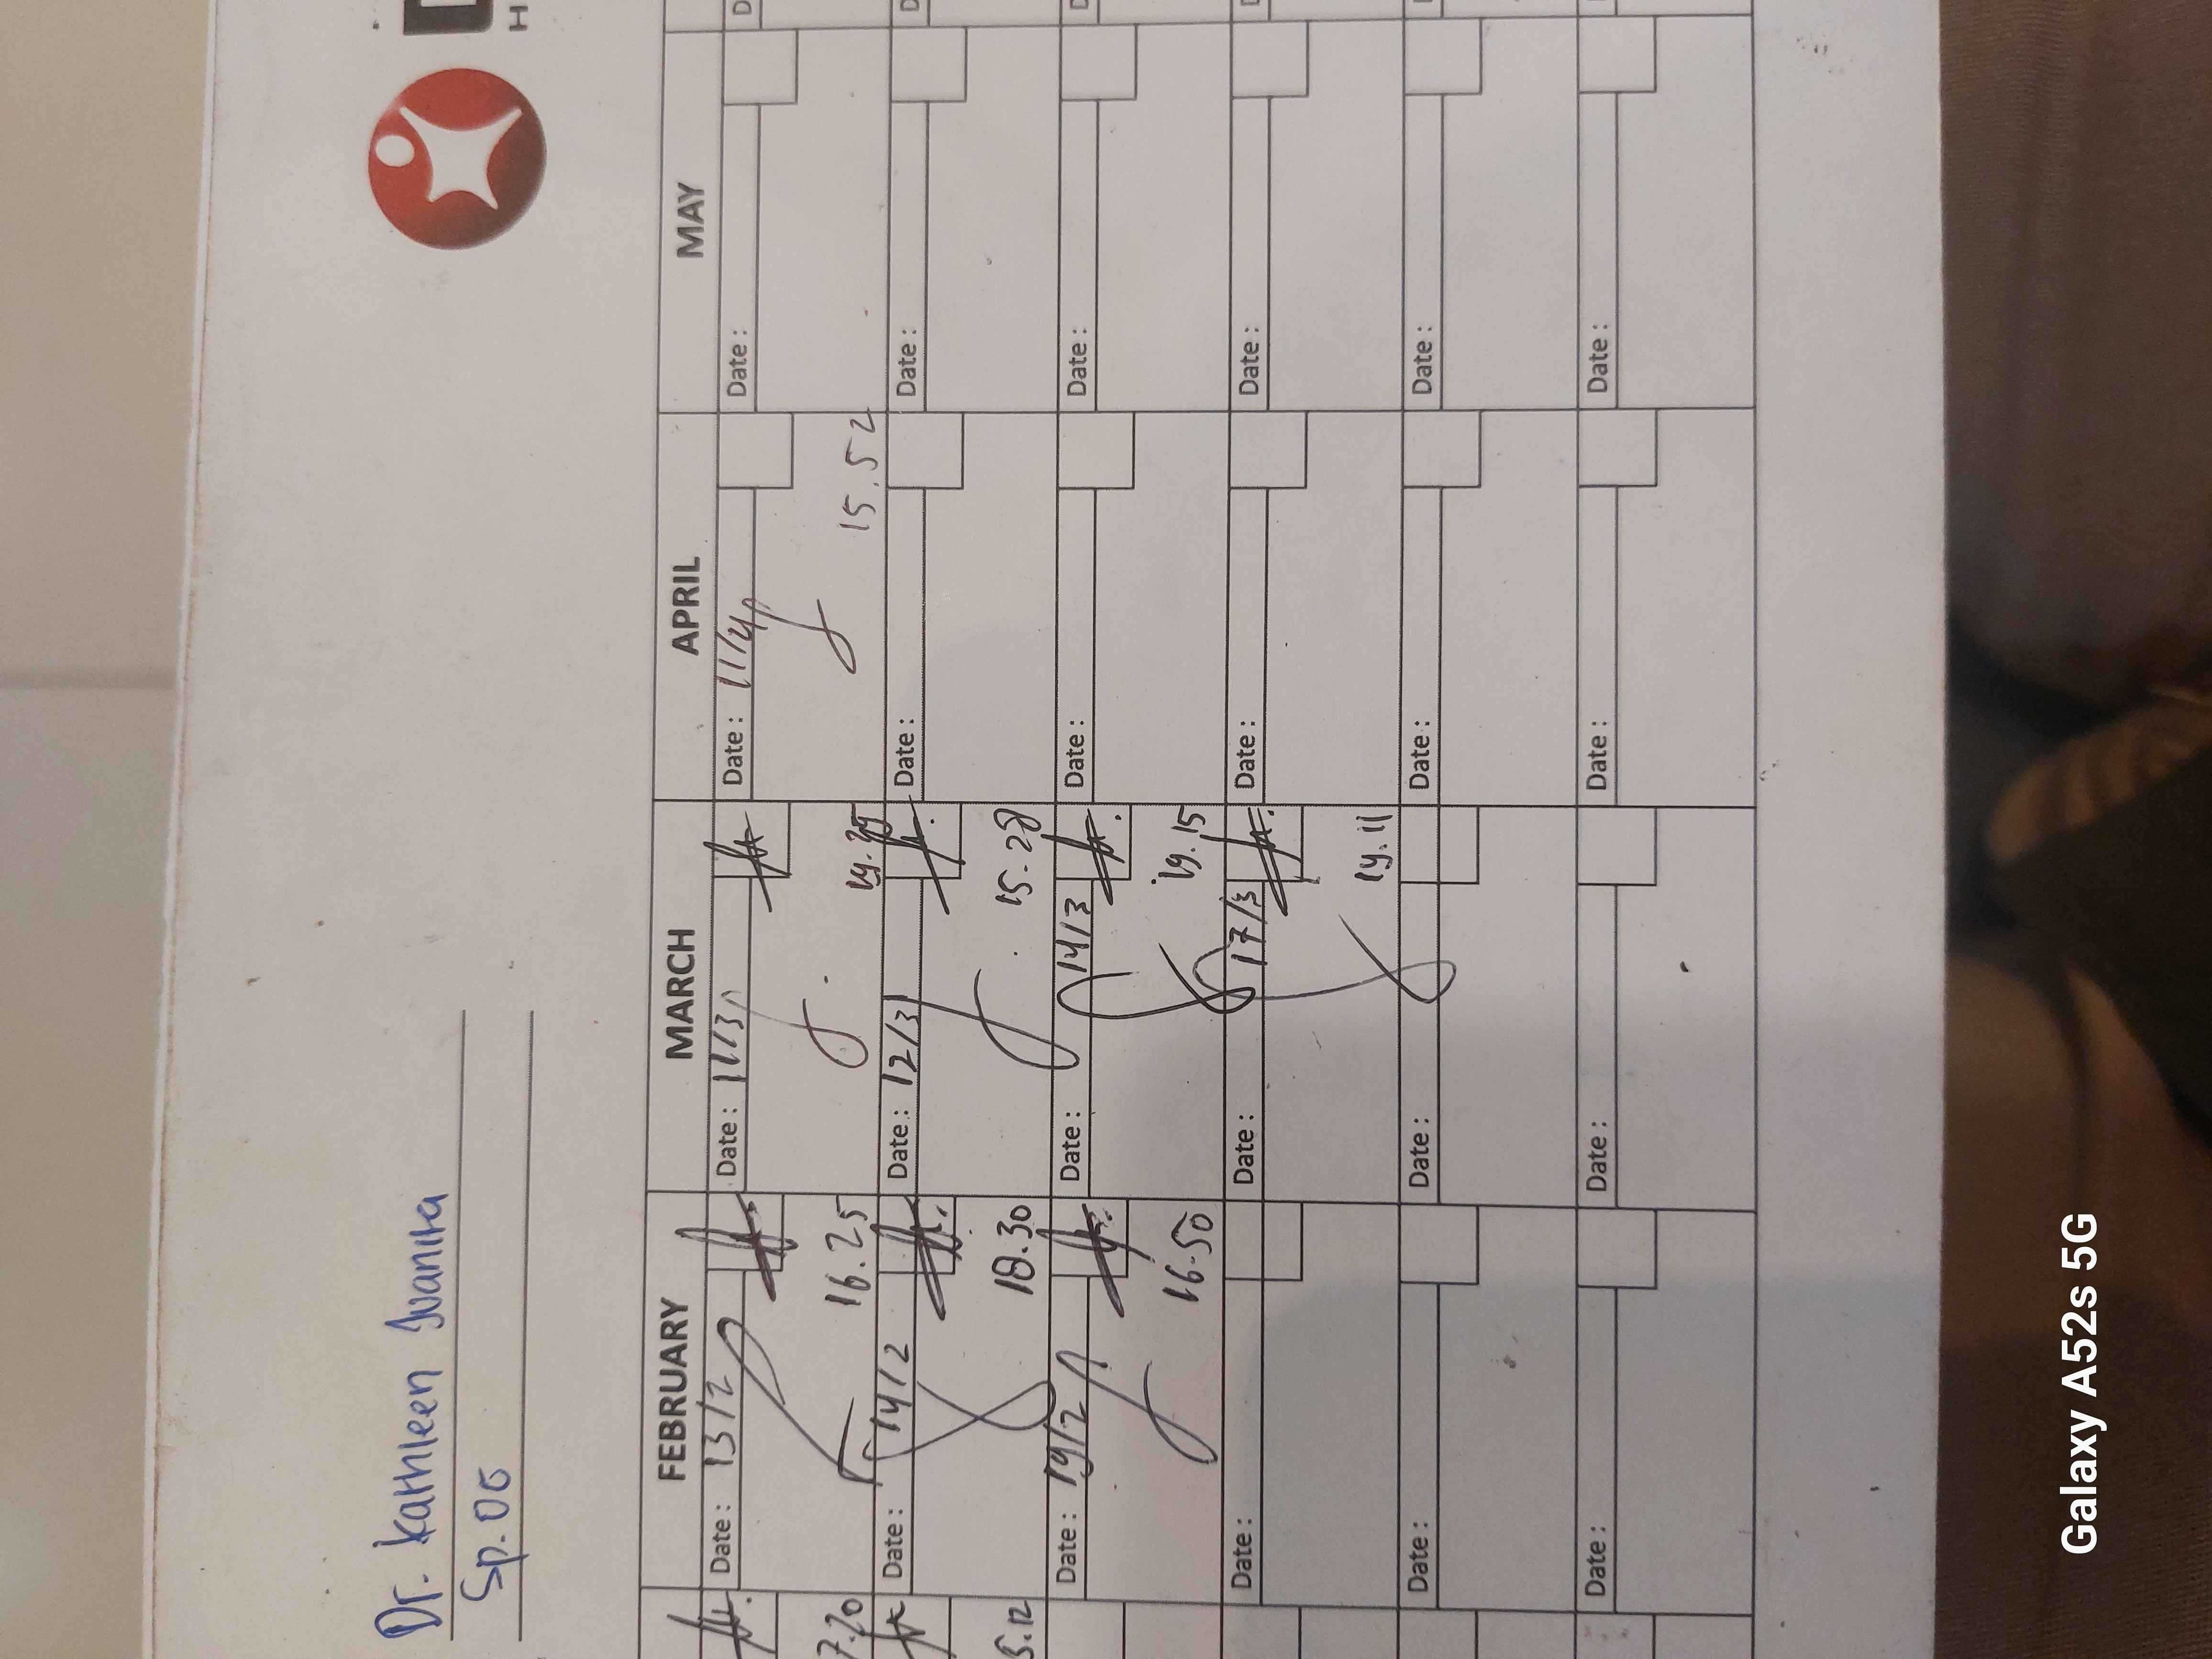 Dr. Kathleen Ivanka
Sp. OG
H
FEBRUARY MARCH APRIL MAY
Date : 13/2 Date : 11/3 Date : 11/4 Date : D
16.25 15.52
Date : 14/2 Date : 12/3 Date : Date : D
18.30 15.28
Date : 19/2 Date : 14/3 Date : Date : D
16.50 19.15
Date : Date : 17/3 Date : Date : D
19.11
Date : Date : Date : Date : D
Date : Date : Date : Date : D
Galaxy A52s 5G